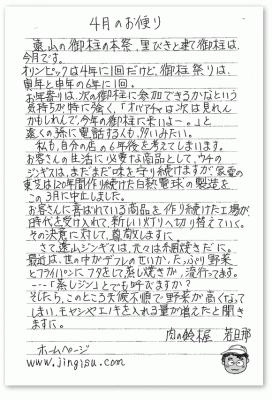 4月のお便り
遠山の御柱の本祭、里びきと建て御柱は、
今月です。
オリンピックは4年に1回だけど、御柱祭りは、
寅年と申年の6年に1回。
お年寄りは、次の御柱に参加できるかなという
気持ちが特に強く、「オバアチャは次は見れん
かもしれんで、今年の御柱に来いよー。」と
遠くの孫に電話する人も、多いみたい。
私も、自分の店の6年後を考えてしまいます。
お客さんの生活に必要な商品として、ウチの
ジンギスは、まだまだ味を守り続けますが、家電の
東芝は120年間作り続けた白熱電球の製造を
この3月に中止しました。
お客さんに喜ばれている商品を作り続けた工場が、
時代を受け入れて、新しい灯りへ切り替えていく。
その決意に対して、尊敬します。
さて遠山ジンギスは、元々は網焼きだに。
最近は、世の中がデフレのせいか、たっぷり野菜
とフライパンにフタをして蒸し焼きが、流行ってます。
---「蒸しジン」とでも呼びますか?
そしたら、このところ天候不順で野菜が高くなって
しまい、モヤシやエノキを入れる量が増えたと聞き
ますに。
肉の鈴木屋 若旦那
ホームページ
www.jingisu.com